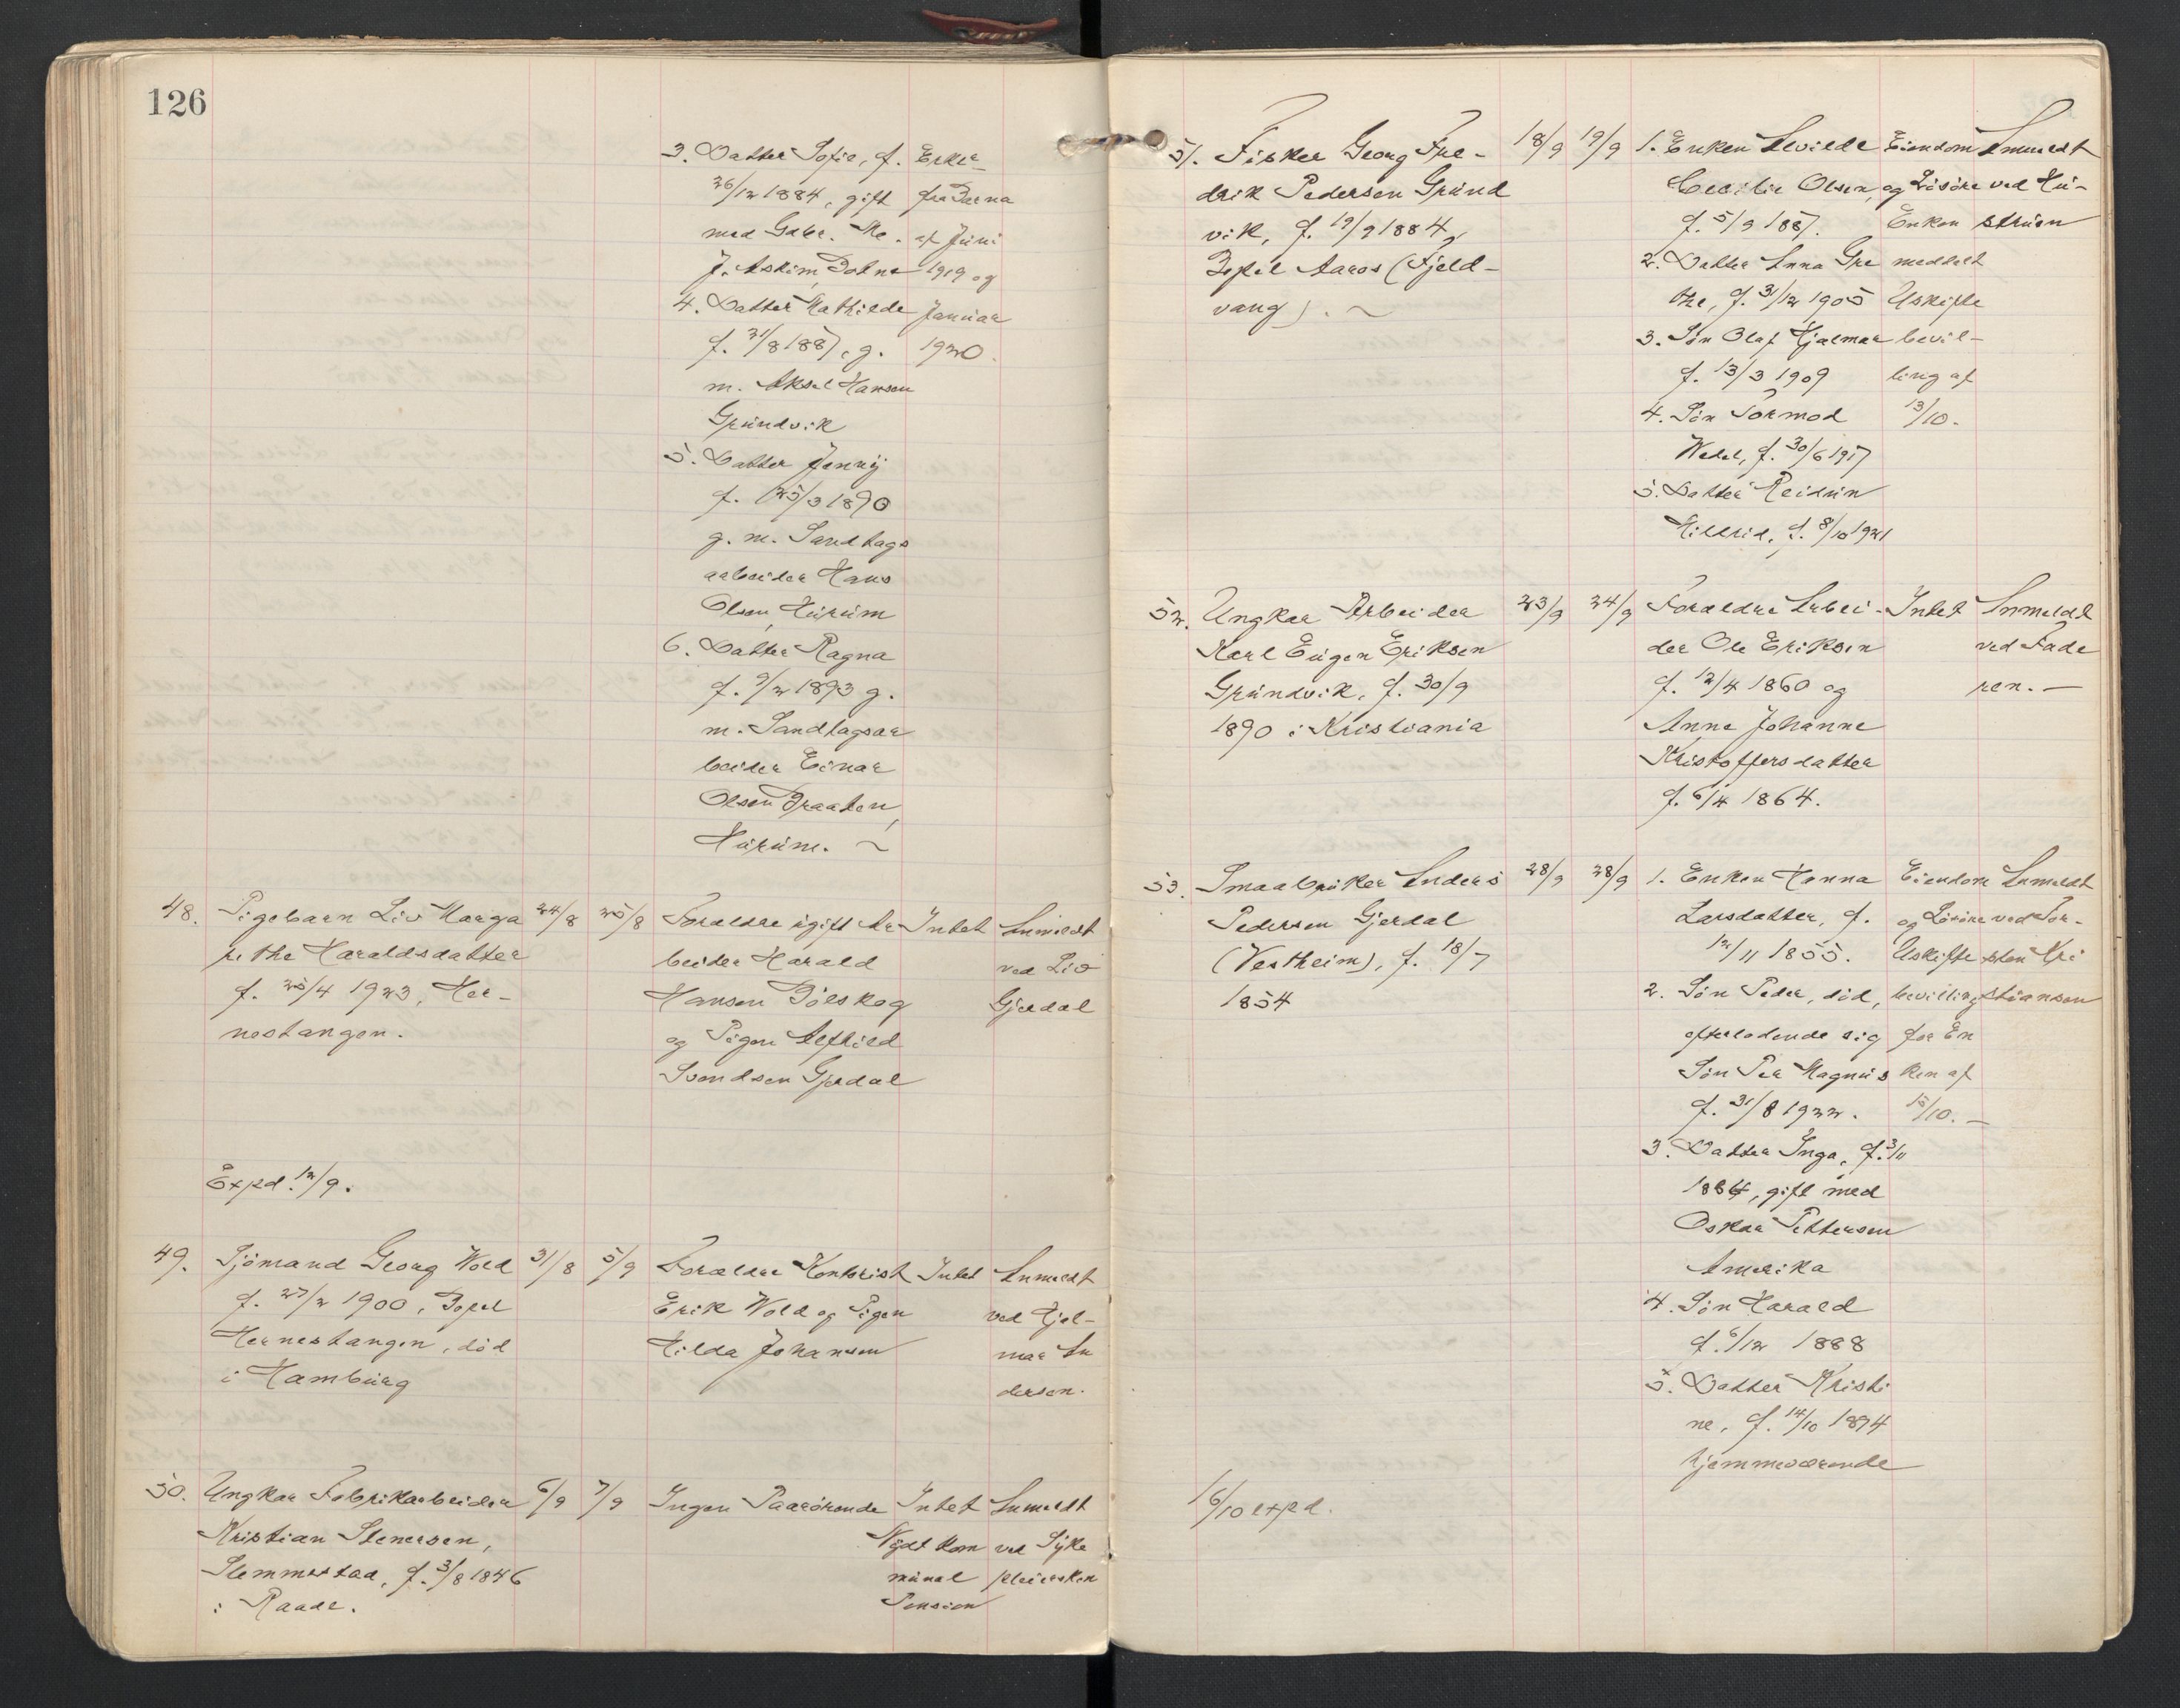 126
3. Datter Sofie, f.
26/12 1884, gift
med Gaber. Re.
J. Askim, Tofte
4. Datter Mathilde
f. 21/8 1887, g.
m. Aksel Hansen
Grundvik
5. Datter Jenny
f. 25/3 1890
g. m. Sandtags
arbeider Hans
Olsen, Hurum
6. Datter Ragna
f. 9/2 1893 g.
m. Sandtagsar
beider Einar
Olsen Braaten,
Hurum.
fra Barna
af Juni
1919 og
Januar
1920.
48. Pigebarn Liv Marga
rethe Haraldsdatter
f. 25/4 1923, Her-
nestangen.
24/8
25/8
Foraldre ugift Ar
beider Harald
Hansen Bölskog
og Pigen Alfhild
Svendsen Gjerdal
Intet
Anmeldt
ved Liv
Gjerdal
Expd. 12/9.
49. Sjömand Georg Wold
f. 27/2 1900, Bopel
Hernestangen, död
i Hamburg
31/8
5/9
Foraldre Kontorist
Erik Wold og Pigen
Hilda Johansen
Intet
Anmeldt
ved Hjal-
mar An
dersen.
50. Ungkar Fabrikarbeider
Kristian Stenersen,
Slemmestad, f. 3/8 1846
i Raade.
6/9
7/9
Ingen Paarörende
Intet
Nydt kom
munal
Pension
Anmeldt
ved Syke
pleiersken
51. Fisker Georg Fre-
drik Pedersen Grund
vik, f. 19/9 1884,
Bopel Aaros (Fjeld-
vang).
18/9
19/9
1. Enken Alvilde
Cecilie Olsen,
f. 5/9 1887.
2. Datter Anna Gre
the, f. 31/12 1905
3. Sön Olaf Hjalmar
f. 13/3 1909
4. Sön Tormod
Wedel, f. 30/6 1917
5. Datter Reidun
Hildrid, f. 8/10 1921
Eiendom
og Lösöre
Enken
meddelt
Uskifte
bevil-
ling af
13/10.
Anmeldt
ved Hu-
struen
52. Ungkar Arbeider
Karl Eugen Eriksen
Grundvik, f. 30/9
1890 i Kristiania
23/9
24/9
Foraldre Arbei-
der Ole Eriksen
f. 12/4 1860 og
Anne Johanne
Kristoffersdatter
f. 6/4 1864.
Intet
Anmeldt
ved Fade
ren.
53. Smaabruker Anders
Pedersen Gjerdal
(Vestheim), f. 18/7
1854
28/9
28/9
1. Enken Hanna
Larsdatter, f.
12/11 1855.
2. Sön Peder, död,
efterladende sig
Sön Per Magnus
f. 31/8 1922.
3. Datter Inga, f. 3/11
1884, gift med
Oskar Pettersen
Amerika
4. Sön Harald
f. 6/12 1888
5. Datter Kristi
ne, f. 14/10 1894
hjemmeværende
Eiendom
og Lösöre
Uskifte
bevilling
for En
ken af
15/10.
Anmeldt
ved Tor-
sten Kri
stiansen
16/10 expd.